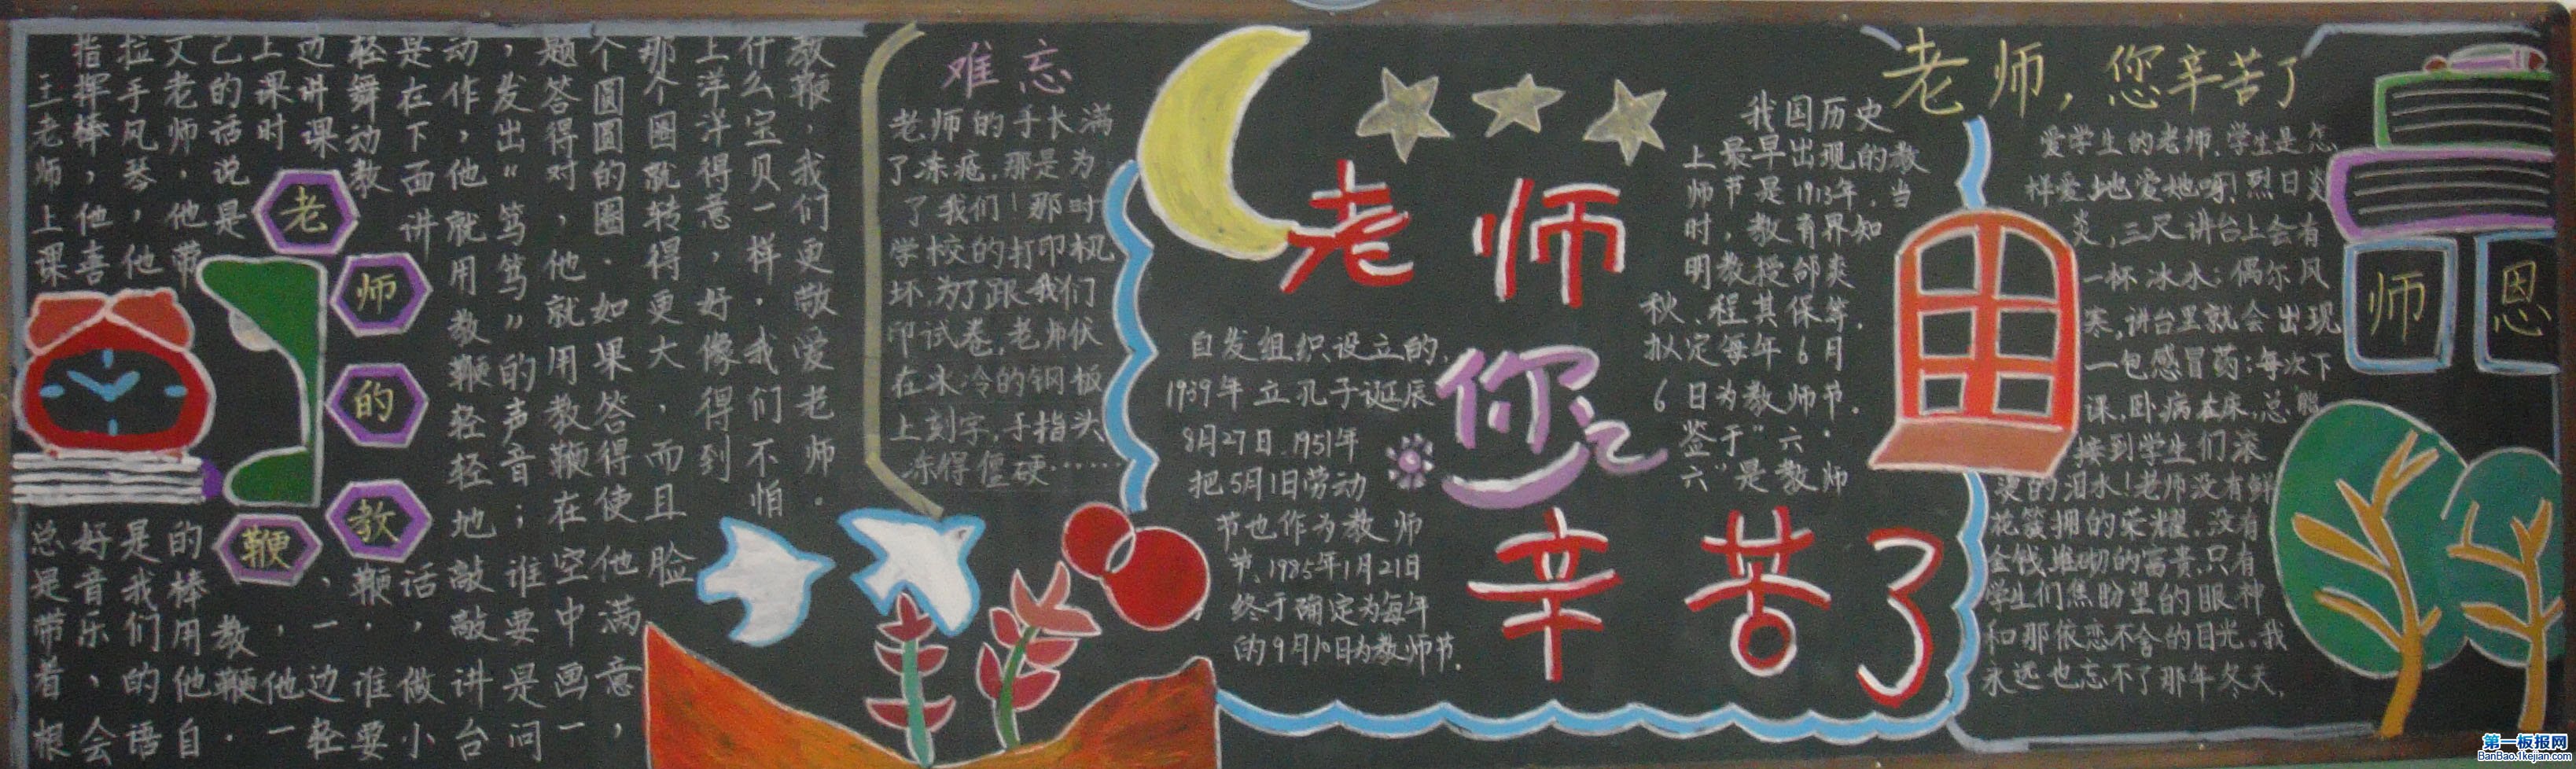 老师的教鞭
王老师上课总是带着根
指挥棒，他喜好音乐，会
拉手风琴，他是我们的语
文老师，他带的棒用他自
己的话说是教鞭．
上课时，他一
边讲课，一边轻
轻舞动教鞭，谁要
是在下面讲话，做小
动作，他就用教鞭轻轻地敲敲讲台
，发出“笃笃”的声音；谁要是问
题答得对，他就用教鞭在空中画一
个圆圆的圈．如果答得使他满意，
那个圈就转得更大，而且脸
上洋洋得意，好像得到
什么宝贝一样．我们不怕
教鞭，我们更敬爱老师．
难忘
老师的手长满
了冻疮．那是为
了我们！那时
学校的打印机
坏．为了跟我们
印试卷，老师伏
在冰冷的钢板
上刻字，手指头
冻得僵硬……
老师
您
辛苦了
我国历史
上最早出现的教
师节是1913年．当
时，教育界知
明教授邰爽
秋、程其保等．
拟定每年6月
6日为教师节．
签于“六．
六”是教师
自发组织设立的．
1939年立孔子诞辰
8月27日．1951年
把5月1日劳动
节也作为教师
节．1985年1月21日
终于确定为每年
的9月10日为教师节．
老师，您辛苦了
爱学生的老师．学生是怎
样爱地爱她呀！烈日炎
炎，三尺讲台上会有
一杯冰水；偶尔风
寒，讲台里就会出现
一包感冒药；每次下
课．卧病在床，总能
接到学生们滚
烫的泪水！老师没有鲜
花簇拥的荣耀．没有
金钱堆砌的富贵．只有
学生们焦盼望的眼神
和那依恋不舍的目光。我
永远也忘不了那年冬天．
师恩
第一板报网
BanBao.1kejian.com